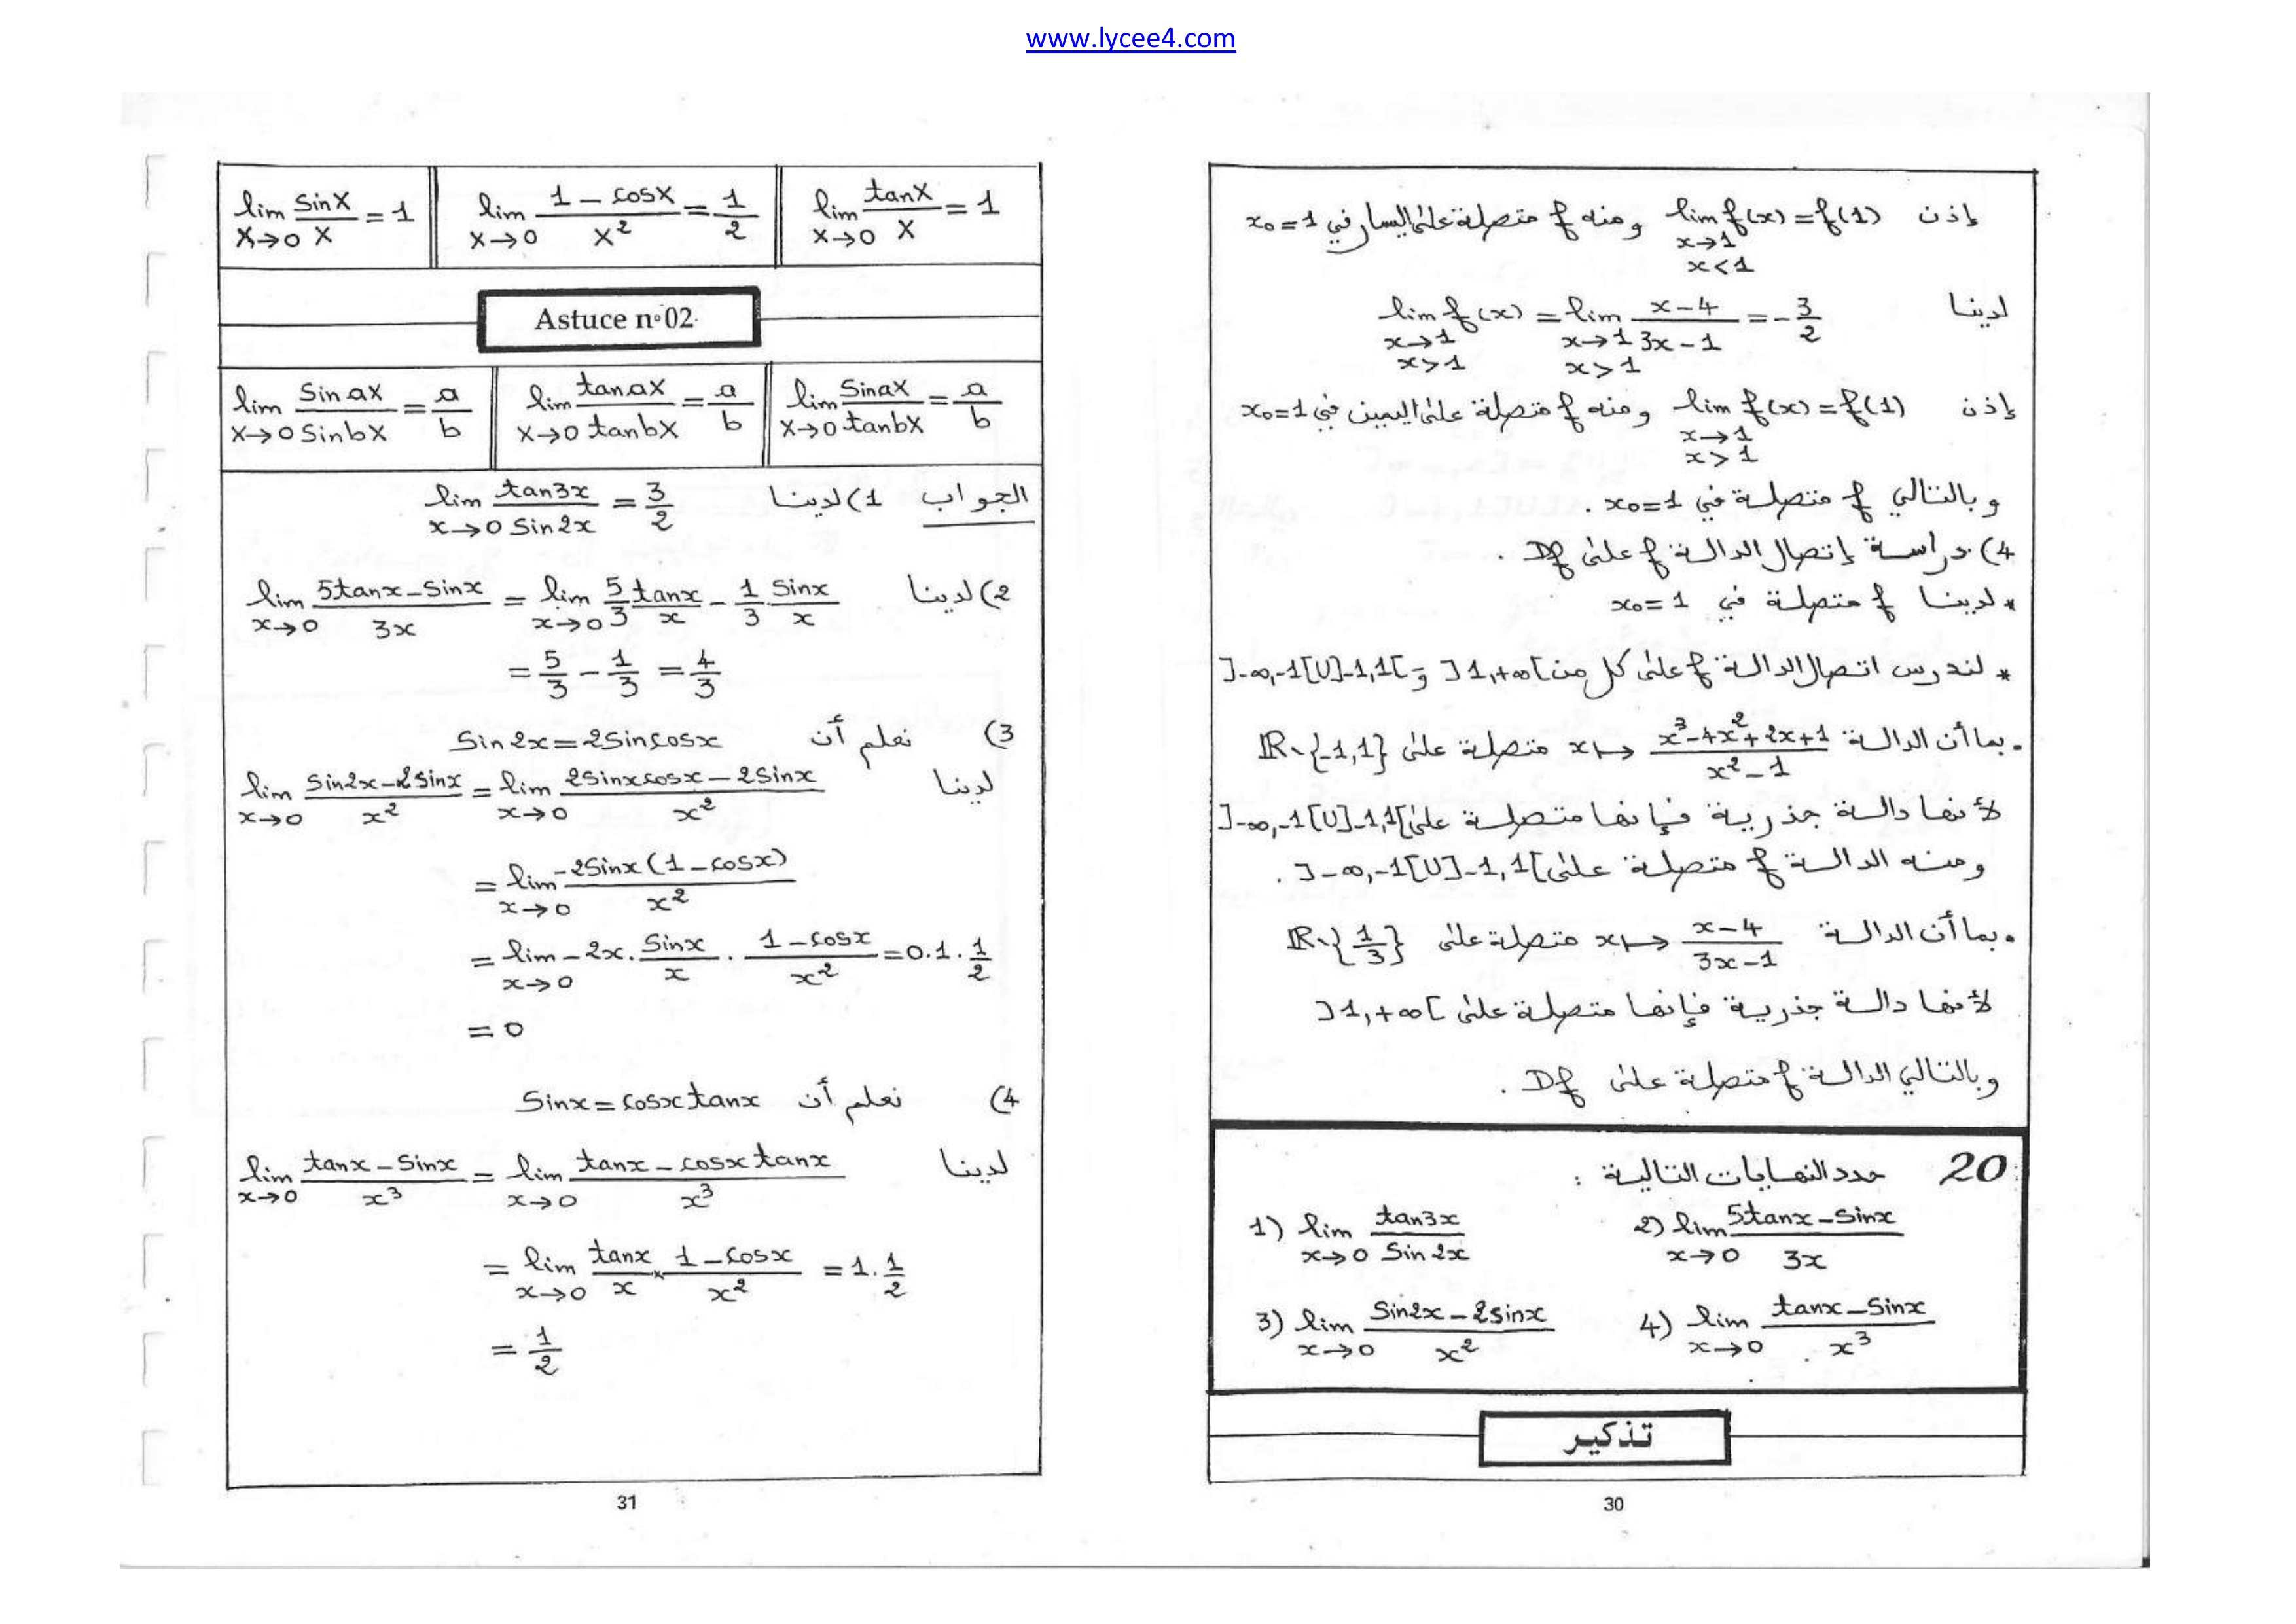 www.lycee4.com
إذن lim f(x) = f(1) ومنه f متصلة على اليسار في x₀=1
x→1
x<1
لدينا lim f(x) = lim (x-4)/(3x-1) = -3/2
x→1 x→1
x>1 x>1
إذن lim f(x) = f(1) ومنه f متصلة على اليمين في x₀=1
x→1
x>1
وبالتالي f متصلة في x₀=1 .
4) دراسة إتصال الدالة f على Df .
* لدينا f متصلة في x₀=1
* لندرس اتصال الدالة f على كل من ]1,+∞[ و ]-∞,-1[U]-1,1[
. بما أن الدالة x ↦ (x³-4x²+2x+1)/(x²-1) متصلة على ℝ\{-1,1}
لأنها دالة جذرية فإنها متصلة على ]-∞,-1[U]-1,1[
ومنه الدالة f متصلة على ]-∞,-1[U]-1,1[ .
. بما أن الدالة x ↦ (x-4)/(3x-1) متصلة على ℝ\{1/3}
لأنها دالة جذرية فإنها متصلة على ]1,+∞[
وبالتالي الدالة f متصلة على Df .
20 حدد النهايات التالية :
1) lim x→0 tan3x/sin2x 2) lim x→0 (5tanx-sinx)/3x
3) lim x→0 (sin2x-2sinx)/x² 4) lim x→0 (tanx-sinx)/x³
تذكير
30
lim x→0 sinx/x = 1 lim x→0 (1-cosx)/x² = 1/2 lim x→0 tanx/x = 1
Astuce n°02
lim x→0 sinax/sinbx = a/b lim x→0 tanax/tanbx = a/b lim x→0 sinax/tanbx = a/b
الجواب 1) لدينا lim x→0 tan3x/sin2x = 3/2
2) لدينا lim x→0 (5tanx-sinx)/3x = lim x→0 5/3 tanx/x - 1/3 . sinx/x
= 5/3 - 1/3 = 4/3
3) نعلم أن sin2x = 2sincosx
لدينا lim x→0 (sin2x-2sinx)/x² = lim x→0 (2sinxcosx-2sinx)/x²
= lim x→0 -2sinx(1-cosx)/x²
= lim x→0 -2x . sinx/x . (1-cosx)/x² = 0.1.1/2
= 0
4) نعلم أن sinx = cosx tanx
لدينا lim x→0 (tanx-sinx)/x³ = lim x→0 (tanx-cosx tanx)/x³
= lim x→0 tanx/x × (1-cosx)/x² = 1.1/2
= 1/2
31